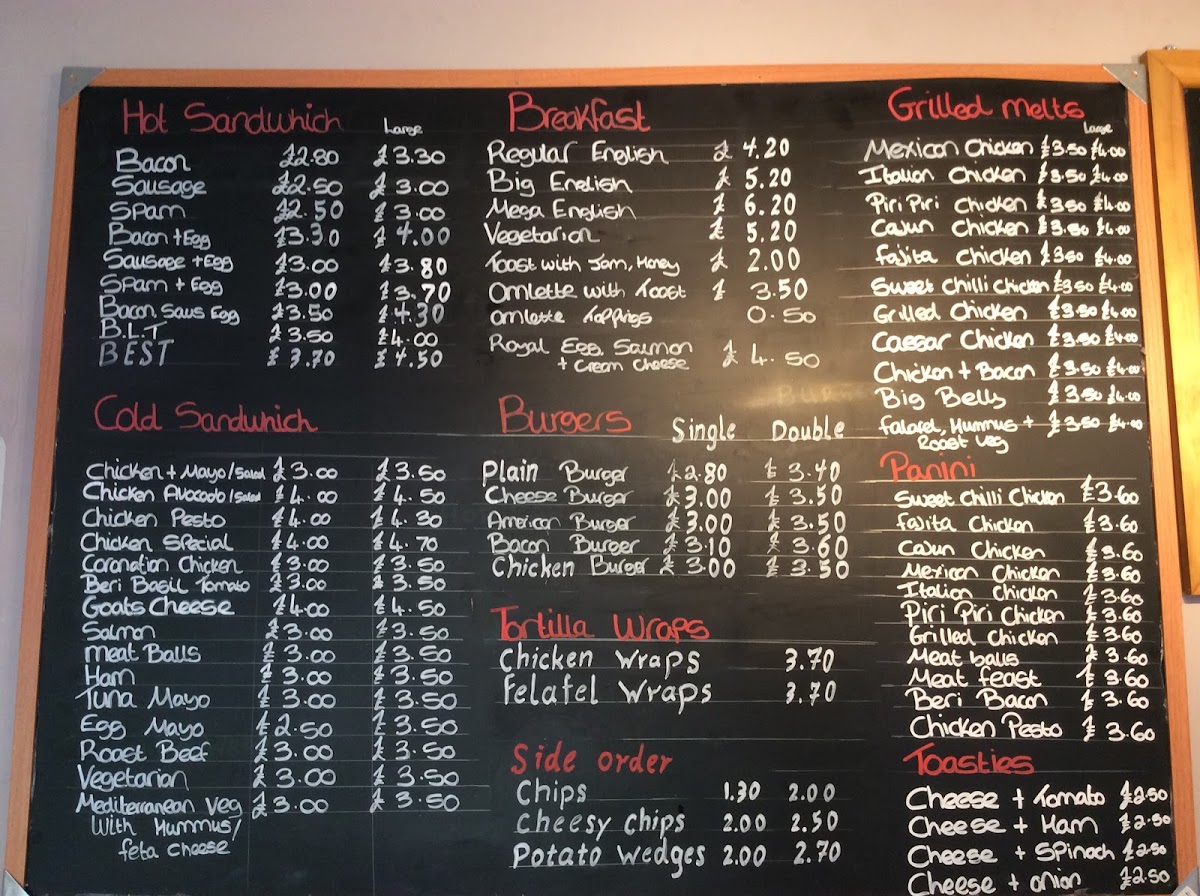 Hot Sandwhich Large
Bacon £2.80 £3.30
Sausage £2.50 £3.00
Spam £2.50 £3.00
Bacon + Egg £3.30 £4.00
Sausage + Egg £3.00 £3.80
Spam + Egg £3.00 £3.70
Bacon Saus Egg £3.50 £4.30
B.L.T £3.50 £4.00
BEST £3.70 £4.50
Cold Sandwhich
Chicken + Mayo/Salad £3.00 £3.50
Chicken Avocado/Salad £4.00 £4.50
Chicken Pesto £4.00 £4.30
Chicken Special £4.00 £4.70
Coronation Chicken £3.00 £3.50
Beri Basil Tomato £3.00 £3.50
Goats Cheese £4.00 £4.50
Salmon £3.00 £3.50
Meat Balls £3.00 £3.50
Ham £3.00 £3.50
Tuna Mayo £3.00 £3.50
Egg Mayo £2.50 £3.50
Roast Beef £3.00 £3.50
Vegetarian £3.00 £3.50
Mediterranean Veg £3.00 £3.50
With Hummus/
feta cheese
Breakfast
Regular English £4.20
Big English £5.20
Mega English £6.20
Vegetarian £5.20
Toast with Jam, Honey £2.00
Omlette with Toast £3.50
Omlette Toppings 0.50
Royal Egg Salmon £4.50
+ Cream Cheese
Burgers Single Double
Plain Burger £2.80 £3.40
Cheese Burger £3.00 £3.50
American Burger £3.00 £3.50
Bacon Burger £3.10 £3.60
Chicken Burger £3.00 £3.50
Tortilla Wraps
Chicken Wraps 3.70
Felafel Wraps 3.70
Side order
Chips 1.30 2.00
Cheesy Chips 2.00 2.50
Potato Wedges 2.00 2.70
Grilled Melts
Large
Mexican Chicken £3.50 £4.00
Italian Chicken £3.50 £4.00
Piri Piri Chicken £3.50 £4.00
Cajun Chicken £3.50 £4.00
Fajita Chicken £3.50 £4.00
Sweet Chilli Chicken £3.50 £4.00
Grilled Chicken £3.50 £4.00
Caesar Chicken £3.50 £4.00
Chicken + Bacon £3.50 £4.00
Big Belly £3.50 £4.00
Falafel, Hummus + £3.50 £4.00
Roast Veg
Panini
Sweet Chilli Chicken £3.60
Fajita Chicken £3.60
Cajun Chicken £3.60
Mexican Chicken £3.60
Italian Chicken £3.60
Piri Piri Chicken £3.60
Grilled Chicken £3.60
Meat balls £3.60
Meat feast £3.60
Beri Bacon £3.60
Chicken Pesto £3.60
Toasties
Cheese + Tomato £2.50
Cheese + Ham £2.50
Cheese + Spinach £2.50
Cheese + onion £2.50